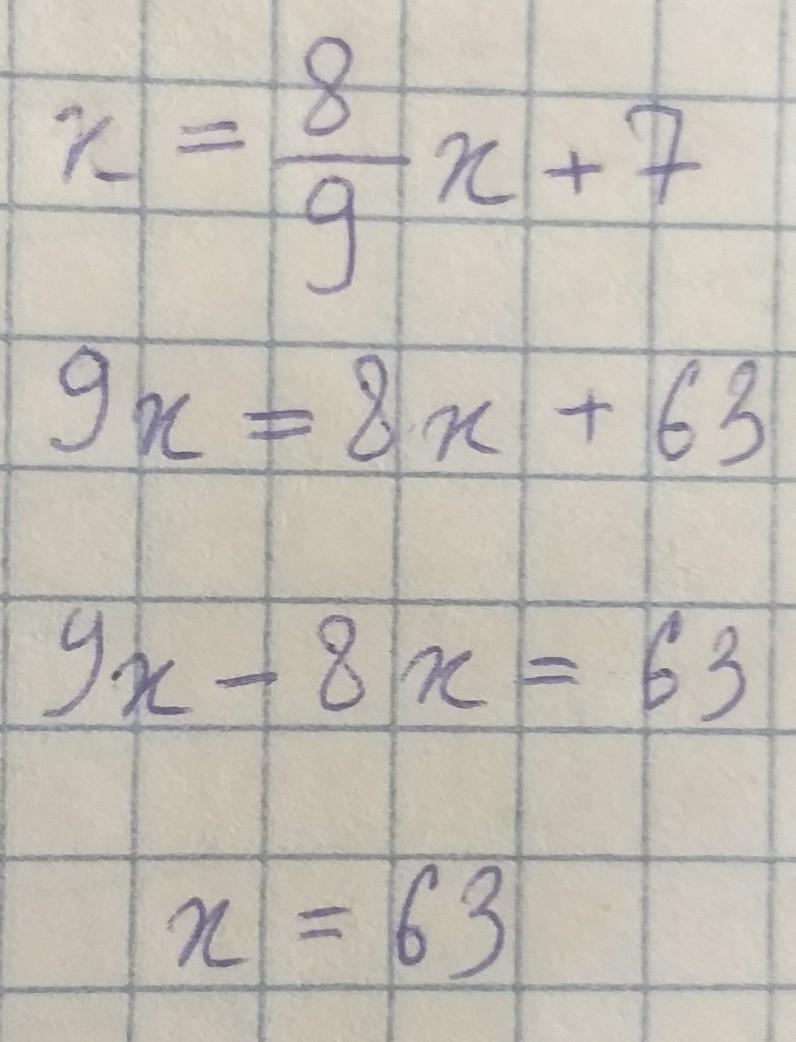 x = 8/9 x + 7
9x = 8x + 63
9x - 8x = 63
x = 63